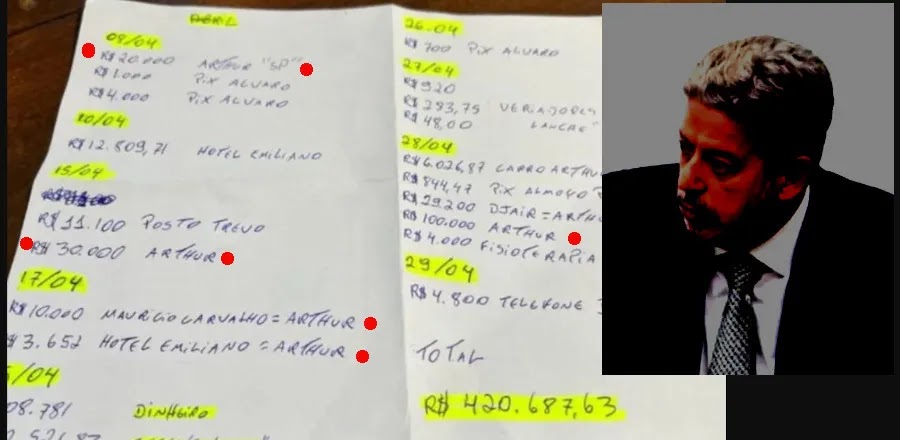 ABRIL
08/04
R$20.000 ARTHUR "SP"
R$1.000 PIX ALVARO
R$4.000 PIX ALVARO
10/04
R$12.809,71 HOTEL EMILIANO
15/04
R$11.100 POSTO TREVO
R$30.000 ARTHUR
17/04
R$10.000 MAURICIO CARVALHO = ARTHUR
$3.652 HOTEL EMILIANO = ARTHUR
/04
08.781 DINHEIRO
26.04
R$700 PIX ALVARO
27/04
R$920
R$283,75
R$48,00 LANCHE"
28/04
R$6.026,87 CARRO ARTHU
R$844,47 PIX ALMOÇO
R$29.200 DJAIR = ARTHU
R$100.000 ARTHUR
R$4.000 FISIOTERAPIA
29/04
R$4.800 TELEFONE
TOTAL
R$420.687,63